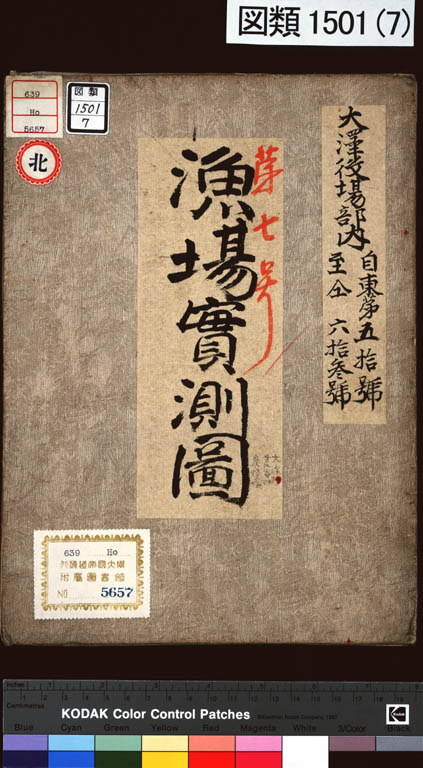 図類 1501 (7)
639
Ho
5657
図類
1501
7
北
大澤役場部内
自東第五拾號
至仝 六拾叁號
第七号
漁場實測圖
639 Ho
附屬圖書館
NO 5657
inches 1 2 3 4 5 6 7 8
Centimetres 1 2 3 4 5 6 7 8 9 10 11 12 13 14 15 16 17 18 19
KODAK Color Control Patches
Kodak
Blue Cyan Green Yellow Red Magenta White 3/Color Black